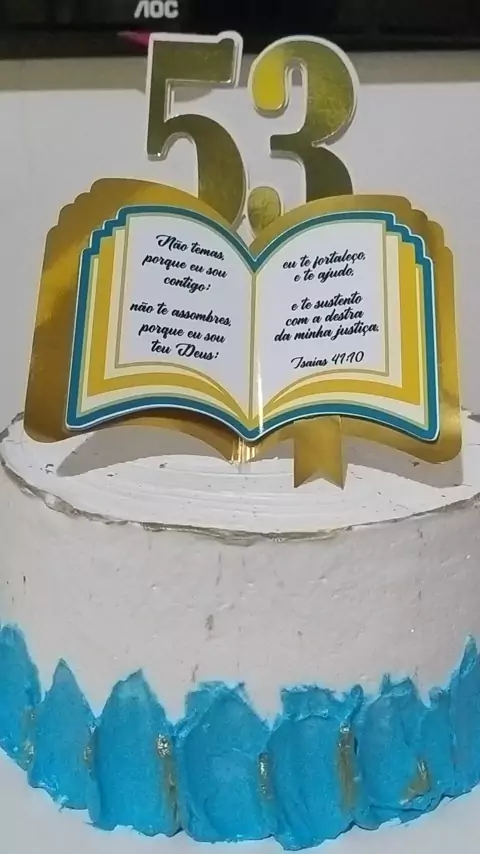 AOC
53
Não temas,
porque eu sou
contigo;
não te assombres,
porque eu sou
teu Deus;
eu te fortaleço,
e te ajudo,
e te sustento
com a destra
da minha justiça.
Isaias 41:10